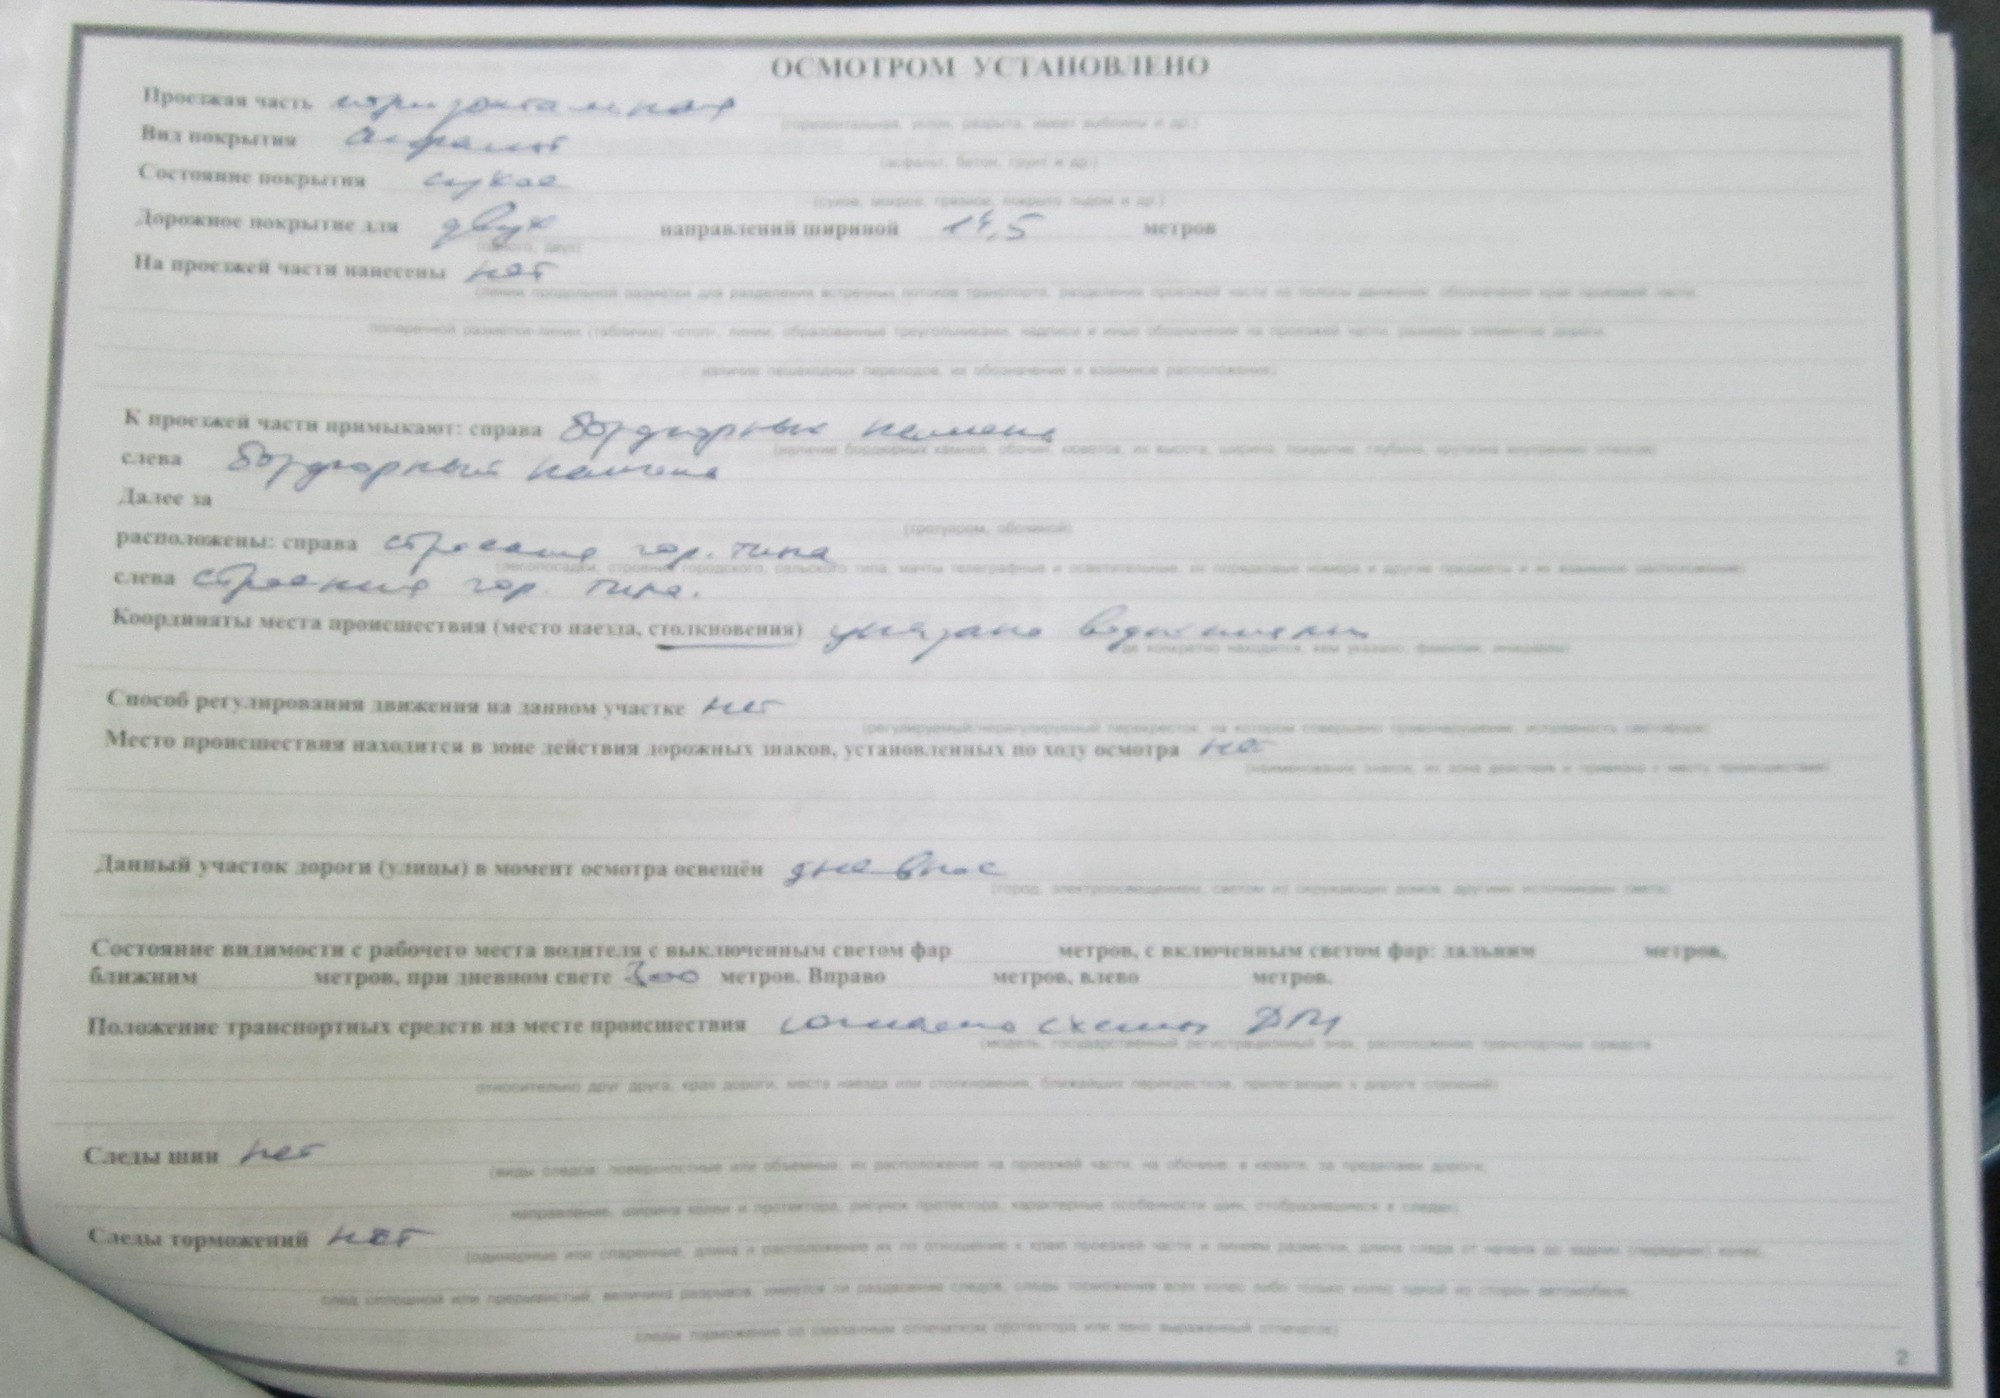 ОСМОТРОМ УСТАНОВЛЕНО
Проезжая часть горизонтальная
(горизонтальная, уклон, разрыта, имеет выбоины и др.)
Вид покрытия асфальт
(асфальт, бетон, грунт и др.)
Состояние покрытия сухое
(сухое, мокрое, грязное, покрыто льдом и др.)
Дорожное покрытие для двух направлений шириной 14,5 метров
(одного, двух)
На проезжей части нанесены нет
(линии продольной разметки для разделения встречных потоков транспорта, разделения проезжей части на полосы движения, обозначения края проезжей части,
поперечной разметки-линии (таблички) «стоп», линии, образованные треугольниками, надписи и иные обозначения на проезжей части, размеры элементов дороги,
наличие пешеходных переходов, их обозначение и взаимное расположение)
К проезжей части примыкают: справа бордюрный камень
(наличие бордюрных камней, обочин, кюветов, их высота, ширина, покрытие, глубина, крутизна внутренних откосов)
слева бордюрный камень
Далее за
(тротуаром, обочиной)
расположены: справа строение гор. типа
(лесопосадки, строения городского, сельского типа, мачты телеграфные и осветительные, их порядковые номера и другие предметы и их взаимное расположение)
слева строение гор. типа.
Координаты места происшествия (место наезда, столкновения) указано водителем
(где конкретно находится, кем указано, фамилия, инициалы)
Способ регулирования движения на данном участке нет
(регулируемый/нерегулируемый перекресток, на котором совершено правонарушение, исправность светофора)
Место происшествия находится в зоне действия дорожных знаков, установленных по ходу осмотра нет
(наименование знаков, их зона действия и привязка к месту происшествия)
Данный участок дороги (улицы) в момент осмотра освещён дневное
(город. электроосвещением, светом из окружающих домов, другими источниками света)
Состояние видимости с рабочего места водителя с выключенным светом фар метров, с включенным светом фар: дальним метров,
ближним метров, при дневном свете 300 метров. Вправо метров, влево метров.
Положение транспортных средств на месте происшествия согласно схемы ДТП
(модель, государственный регистрационный знак, расположение транспортных средств
относительно друг друга, края дороги, места наезда или столкновения, ближайших перекрестков, прилегающих к дороге строений)
Следы шин нет
(виды следов: поверхностные или объемные, их расположение на проезжей части, на обочине, в кювете, за пределами дороги,
направление, ширина колеи и протектора, рисунок протектора, характерные особенности шин, отобразившиеся в следах)
Следы торможений нет
(одинарные или спаренные, длина и расположение их по отношению к краю проезжей части и линиям разметки, длина следа от начала до задних (передних) колес,
след сплошной или прерывистый, величина разрывов, имеется ли раздвоение следов, следы торможения всех колес либо только колес одной из сторон автомобиля,
следы торможения со смазанным отпечатком протектора или явно выраженный отпечаток)
2